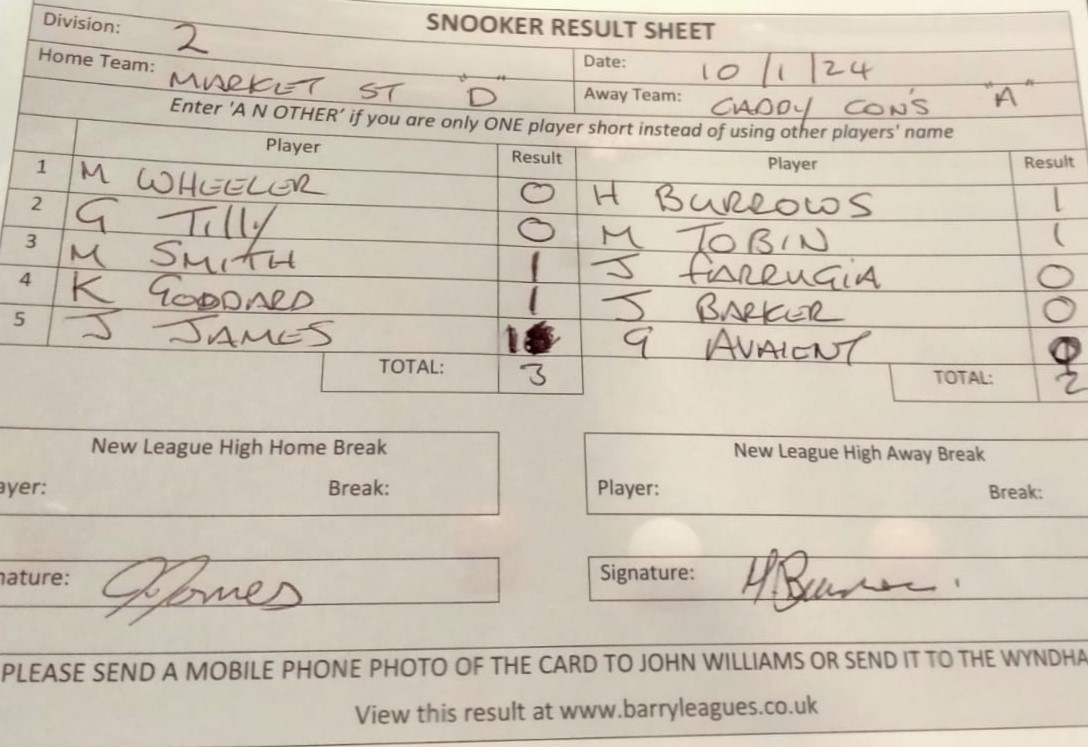 SNOOKER RESULT SHEET
Division: 2
Home Team: MARKET ST "D" Date: 10/1/24
Away Team: CADDY CON'S "A"
Enter 'A N OTHER' if you are only ONE player short instead of using other players' name
Player Result Player Result
1 M WHEELER 0 H BURROWS 1
2 G Tilly 0 M TOBIN 1
3 M SMITH 1 J FARRUGIA 0
4 K GODDARD 1 J BARKER 0
5 J JAMES 1 G AVAIENT 0
TOTAL: 3 TOTAL: 2
New League High Home Break New League High Away Break
ayer: Break: Player: Break:
nature: J James Signature: H.Burrows.
PLEASE SEND A MOBILE PHONE PHOTO OF THE CARD TO JOHN WILLIAMS OR SEND IT TO THE WYNDHA
View this result at www.barryleagues.co.uk